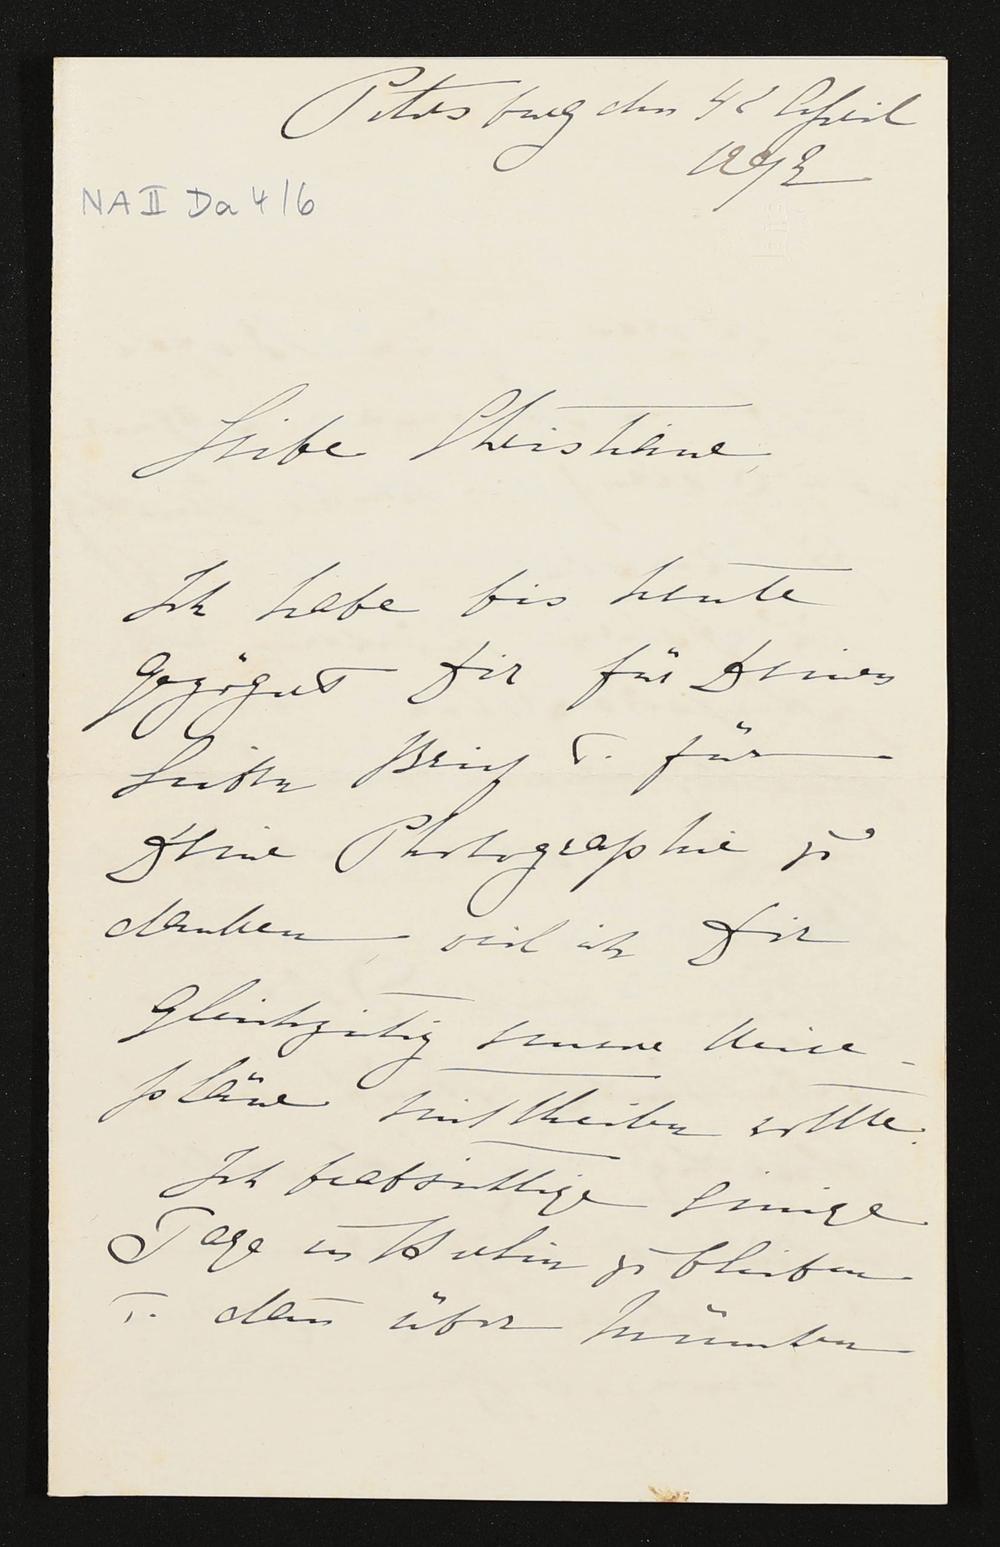 Petersburg den April
NA II Da 4/6
Liebe Christiane,
Ich habe bis heute
gezögert Dir für Deinen
lieben Brief u. für
Deine Photographie zu
danken, weil ich Dir
gleichzeitig meine Reise-
pläne mittheilen wollte.
Ich beabsichtige einige
Tage in Berlin zu bleiben
u. dann über München